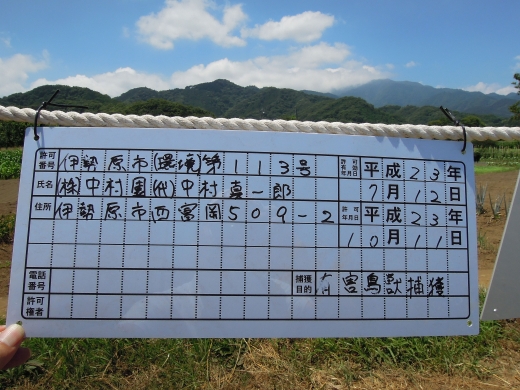 許可番号 伊勢原市(環境)第113号 許可年月日 平成23年7月12日
氏名 (株)中村園(代)中村真一郎
住所 伊勢原市西富岡509-2 許可年月日 平成23年10月11日
電話番号 捕獲目的 有害鳥獣捕獲
許可権者